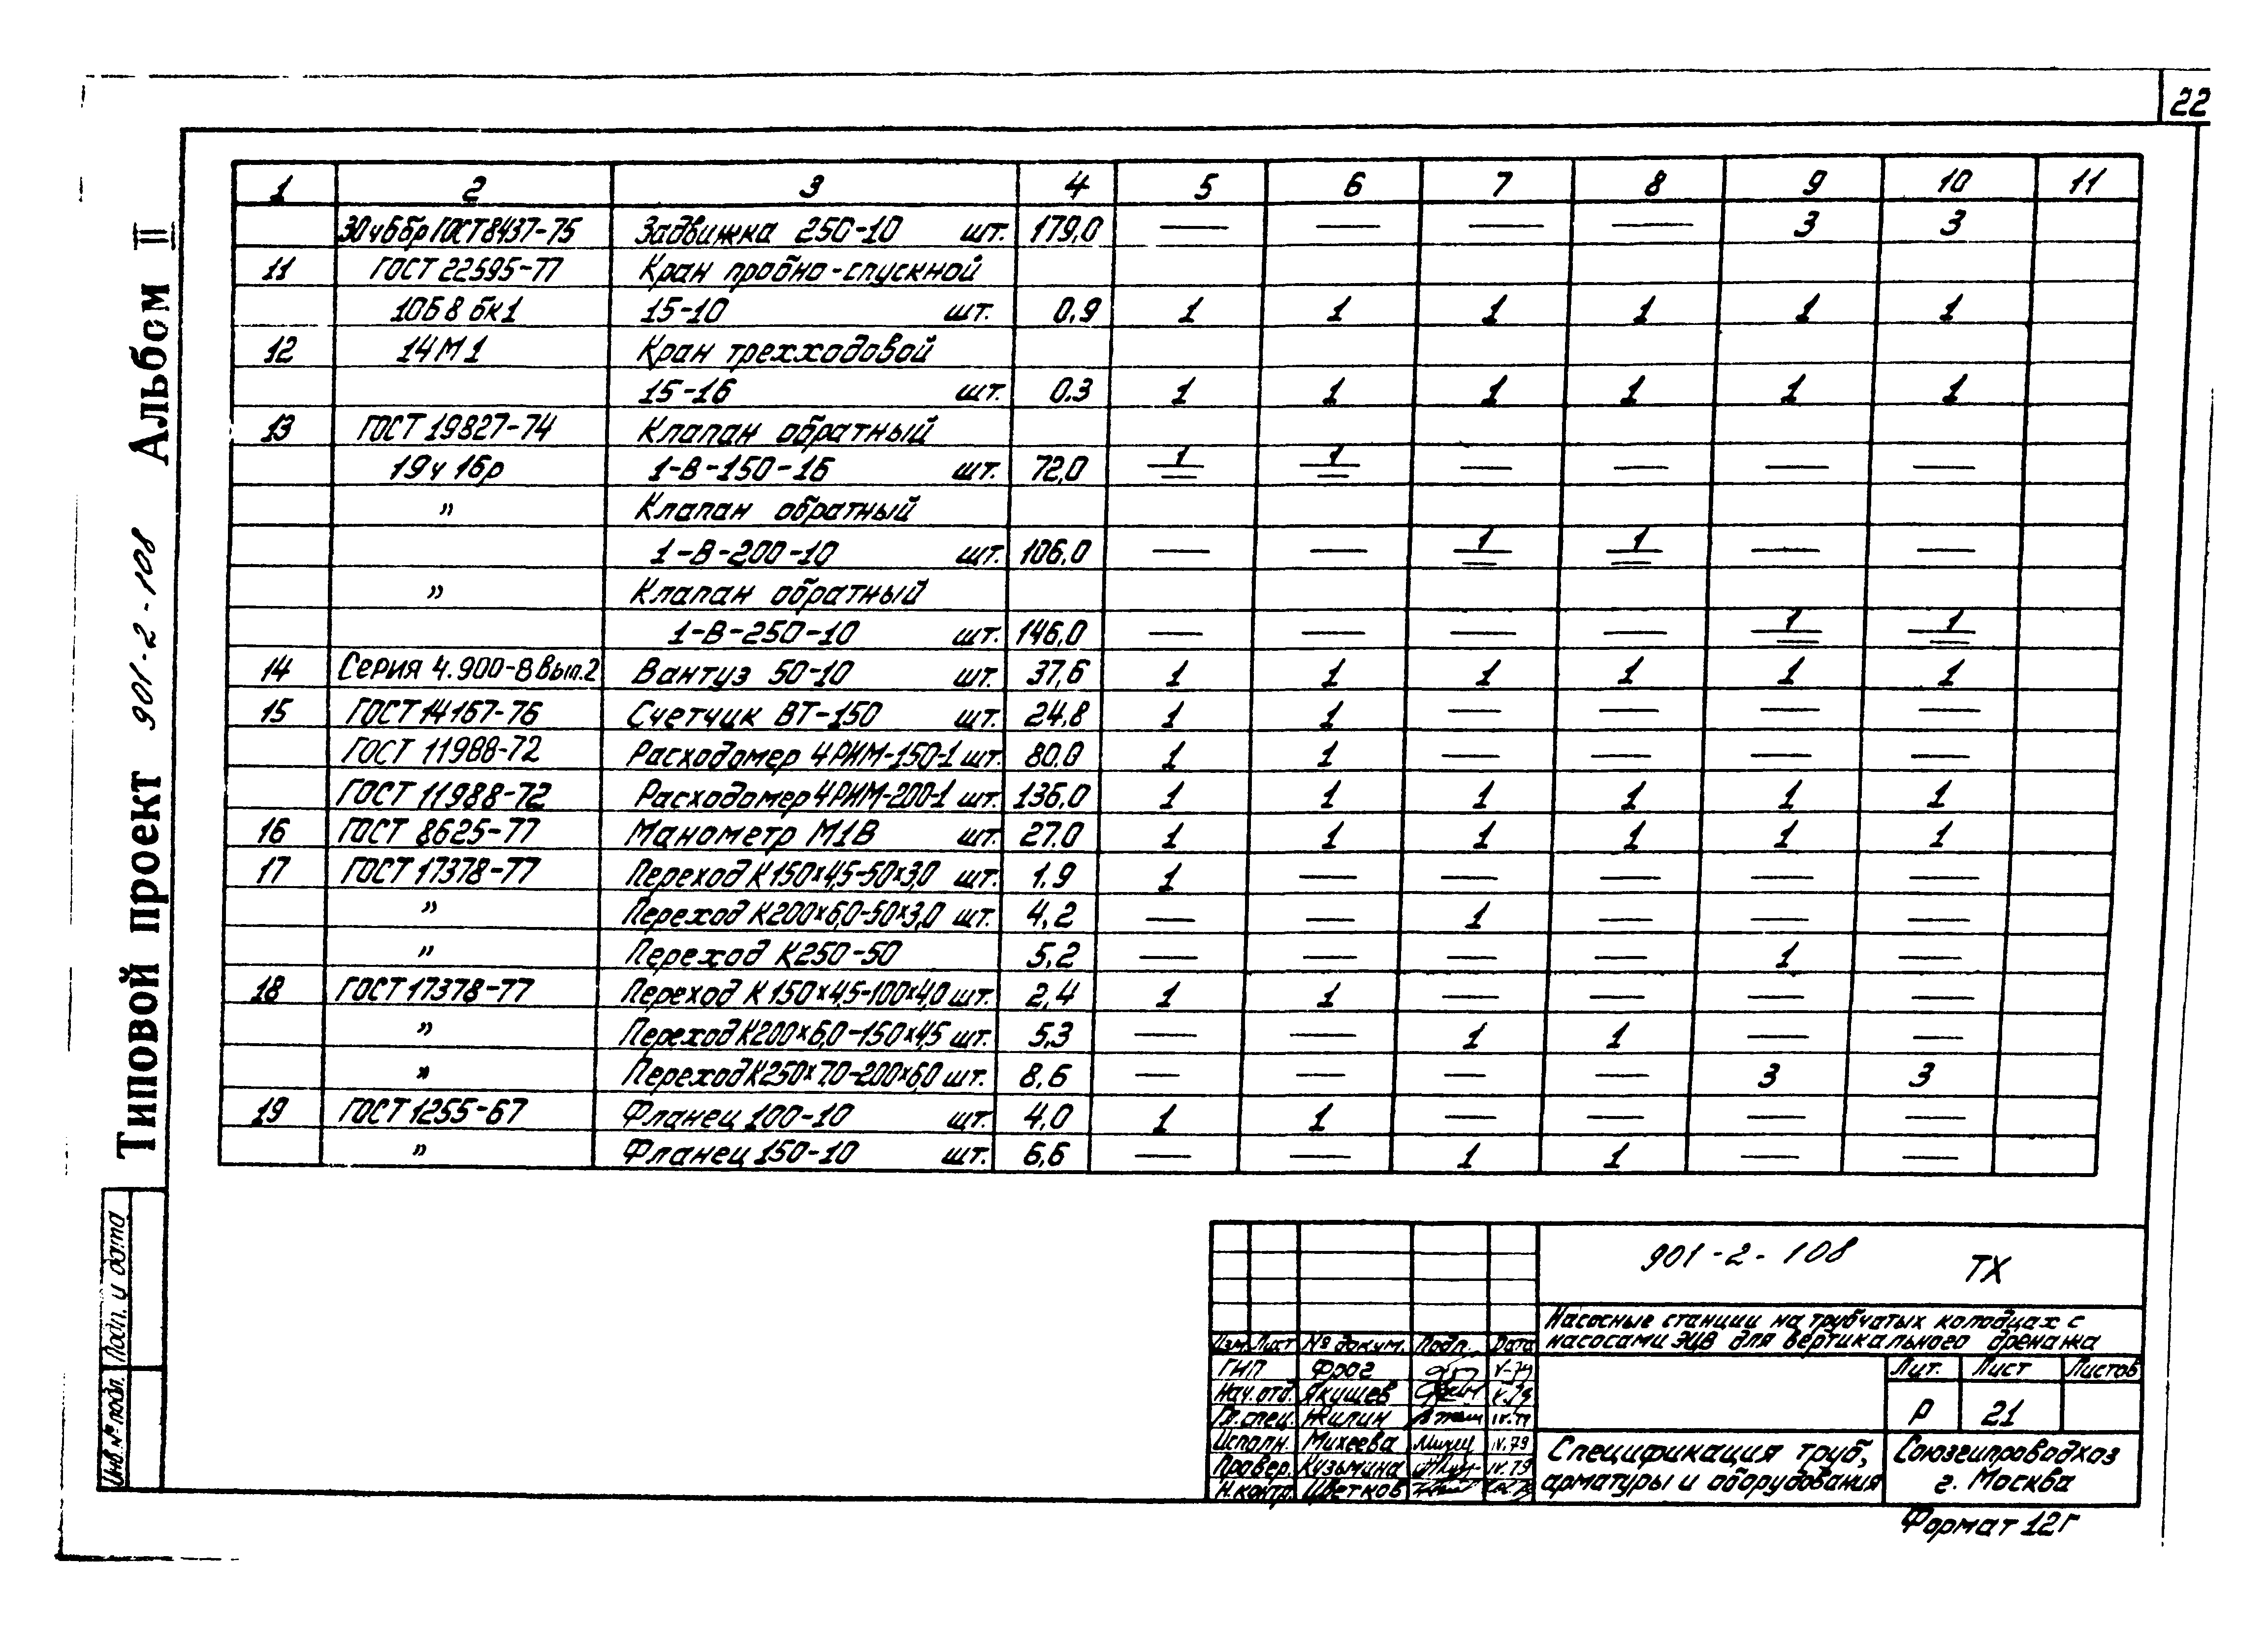 22
Типовой проект 901-2-108 Альбом II
1 2 3 4 5 6 7 8 9 10 11
30ч6бр ГОСТ8437-75 Задвижка 250-10 шт. 179,0 — — — — 3 3
11 ГОСТ 22595-77 Кран пробно-спускной
10Б8бк1 15-10 шт. 0.9 1 1 1 1 1 1
12 14М1 Кран трехходовой
15-16 шт. 0.3 1 1 1 1 1 1
13 ГОСТ 19827-74 Клапан обратный
19ч16р 1-В-150-16 шт. 72,0 1 1 — — — —
" Клапан обратный
1-В-200-10 шт. 106.0 — — 1 1 — —
" Клапан обратный
1-В-250-10 шт. 146.0 — — — — 1 1
14 Серия 4.900-8 вып.2 Вантуз 50-10 шт. 37,6 1 1 1 1 1 1
15 ГОСТ 14167-76 Счетчик ВТ-150 шт. 24.8 1 1 — — — —
ГОСТ 11988-72 Расходомер 4РИМ-150-1 шт. 80.0 1 1 — — — —
ГОСТ 11988-72 Расходомер 4РИМ-200-1 шт. 136.0 1 1 1 1 1 1
16 ГОСТ 8625-77 Манометр М1В шт. 27.0 1 1 1 1 1 1
17 ГОСТ 17378-77 Переход К150×4,5-50×3,0 шт. 1.9 1 — — — — —
" Переход К200×6,0-50×3,0 шт. 4,2 — — 1 — — —
" Переход К250-50 5,2 — — — — 1 —
18 ГОСТ 17378-77 Переход К150×4,5-100×4,0 шт. 2,4 1 1 — — — —
" Переход К200×6,0-150×4,5 шт. 5,3 — — 1 1 — —
" Переход К250×7.0-200×6,0 шт. 8,6 — — — — 3 3
19 ГОСТ 1255-67 Фланец 100-10 шт. 4,0 1 1 — — — —
" Фланец 150-10 шт. 6,6 — — 1 1 — —
Инв.№подл. Подп. и дата
901-2-108 ТХ
Насосные станции на трубчатых колодцах с
насосами ЭЦВ для вертикального дренажа
Изм. Лист № докум. Подп. Дата
ГИП Фрог V-79
Нач.отд. Якушев V.79
Гл.спец. Жилин IV.79
Исполн. Михеева IV.79
Провер. Кузьмина IV.79
Н.контр. Цветков
Лит. Лист Листов
Р 21
Спецификация труб,
арматуры и оборудования
Союзгипроводхоз
г. Москва
Формат 12Г